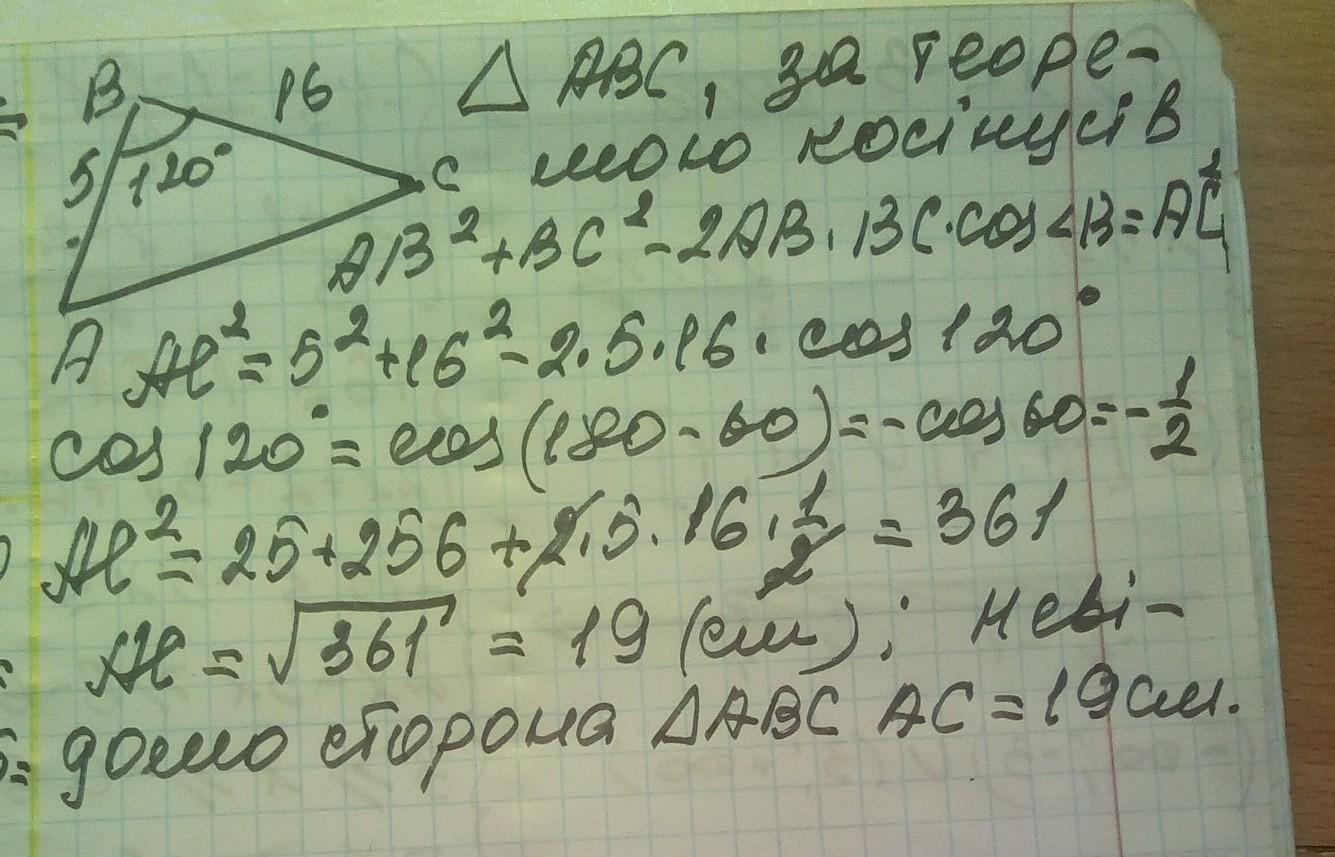 B 16 △ ABC, за теоре-
5 120° C мою косінусів
AB² + BC² - 2AB · BC · cos∠B = AC²
A AC² = 5² + 16² - 2 · 5 · 16 · cos 120°
cos 120° = cos(180 - 60) = - cos 60 = - 1/2
AC² = 25 + 256 + 2 · 5 · 16 · 1/2 = 361
AC = √361 = 19 (см); Неві-
домо сторона △ABC AC = 19 см.